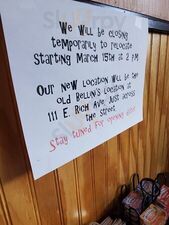 We will be closing
temporarily to relocate
starting March 15th at 2 pm
Our new location will be the
old Bellini's location at
111 E. Rich Ave just across
the street.
Stay tuned for opening date!